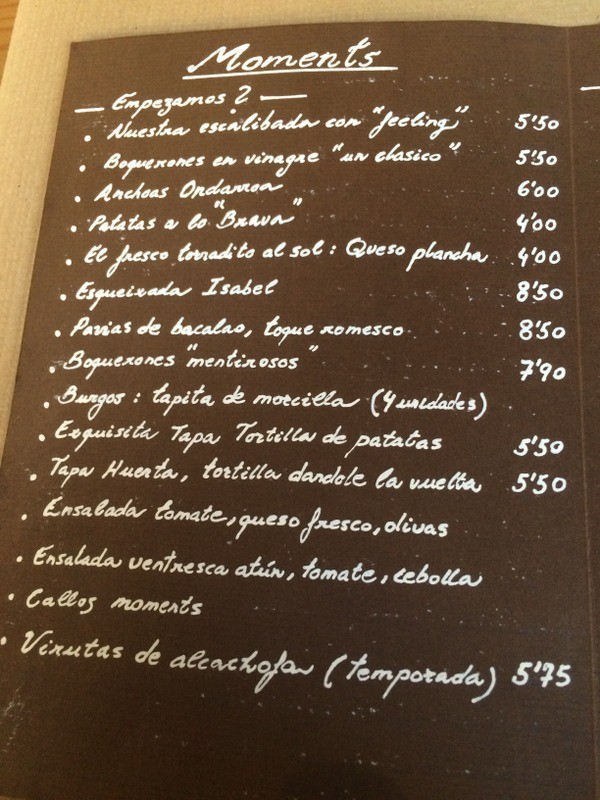 Moments
— Empezamos? —
. Nuestra escalibada con "feeling" 5'50
. Boquerones en vinagre "un clasico" 5'50
. Anchoas Ondarroa 6'00
. Patatas a lo "Brava" 4'00
. El fresco torradito al sol: Queso plancha 4'00
. Esqueixada Isabel 8'50
. Pavias de bacalao, toque romesco 8'50
. Boquerones "mentirosos" 7'90
. Burgos: tapita de morcilla (4 unidades)
. Exquisita Tapa Tortilla de patatas 5'50
. Tapa Huerta, tortilla dandole la vuelta 5'50
. Ensalada tomate, queso fresco, olivas
. Ensalada ventresca atún, tomate, cebolla
. Callos moments
. Virutas de alcachofa (temporada) 5'75